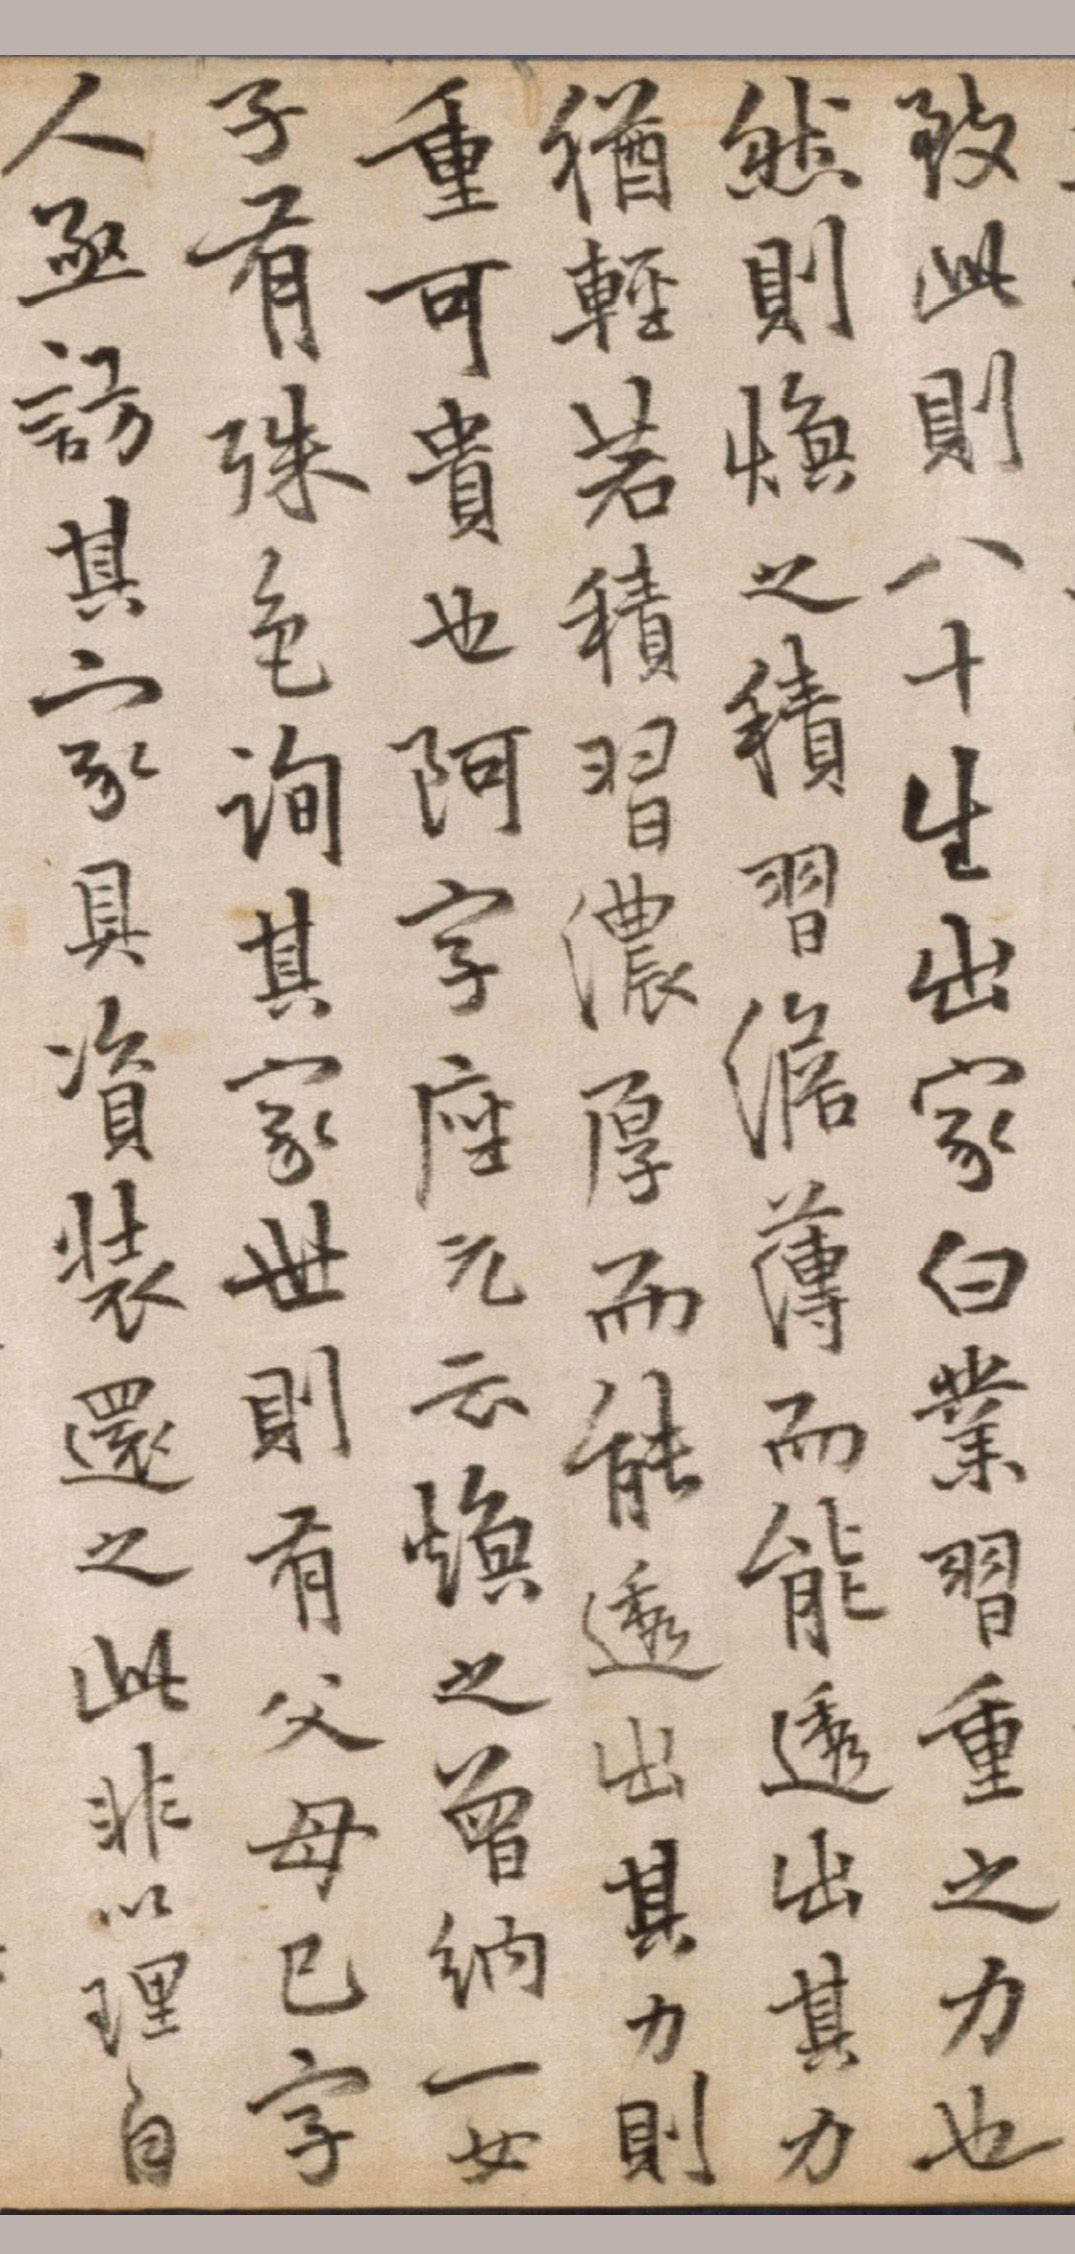 致此則八十生出家白業習重之力也
然則煥之積習澹薄而能透出其力
猶輕若積習濃厚而能透出其力則
重可貴也阿字座元云煥之曾納一女
子有殊色詢其家世則有父母已字
人亟訪其家具資裝還之此非以理自